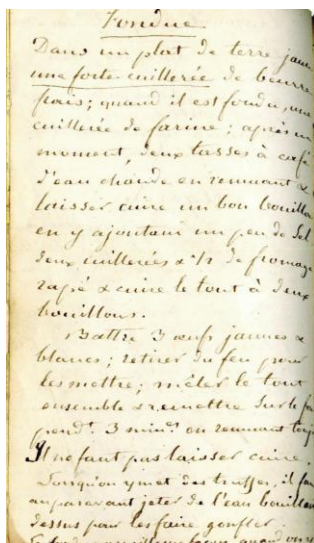 Fondue
Dans un plat de terre jaune
une forte cuillerée de beurre
frais; quand il est fondu, une
cuillerée de farine; après un
moment, deux tasses à café
d'eau chaude en remuant &
laisser cuire un bon bouillon
en y ajoutant un peu de sel
deux cuillerées & ½ de fromage
rapé & cuire le tout à deux
bouillons.
Battre 3 œufs jaunes &
blancs; retirer du feu pour
les mettre; mêler le tout
ensemble & remettre sur le feu
pendt. 3 mint. en remuant touj
Il ne faut pas laisser cuire.
Lorsqu'on y met des truffes, il faut
auparavant jeter de l'eau bouillante
dessus pour les faire gonfler.
quand on y